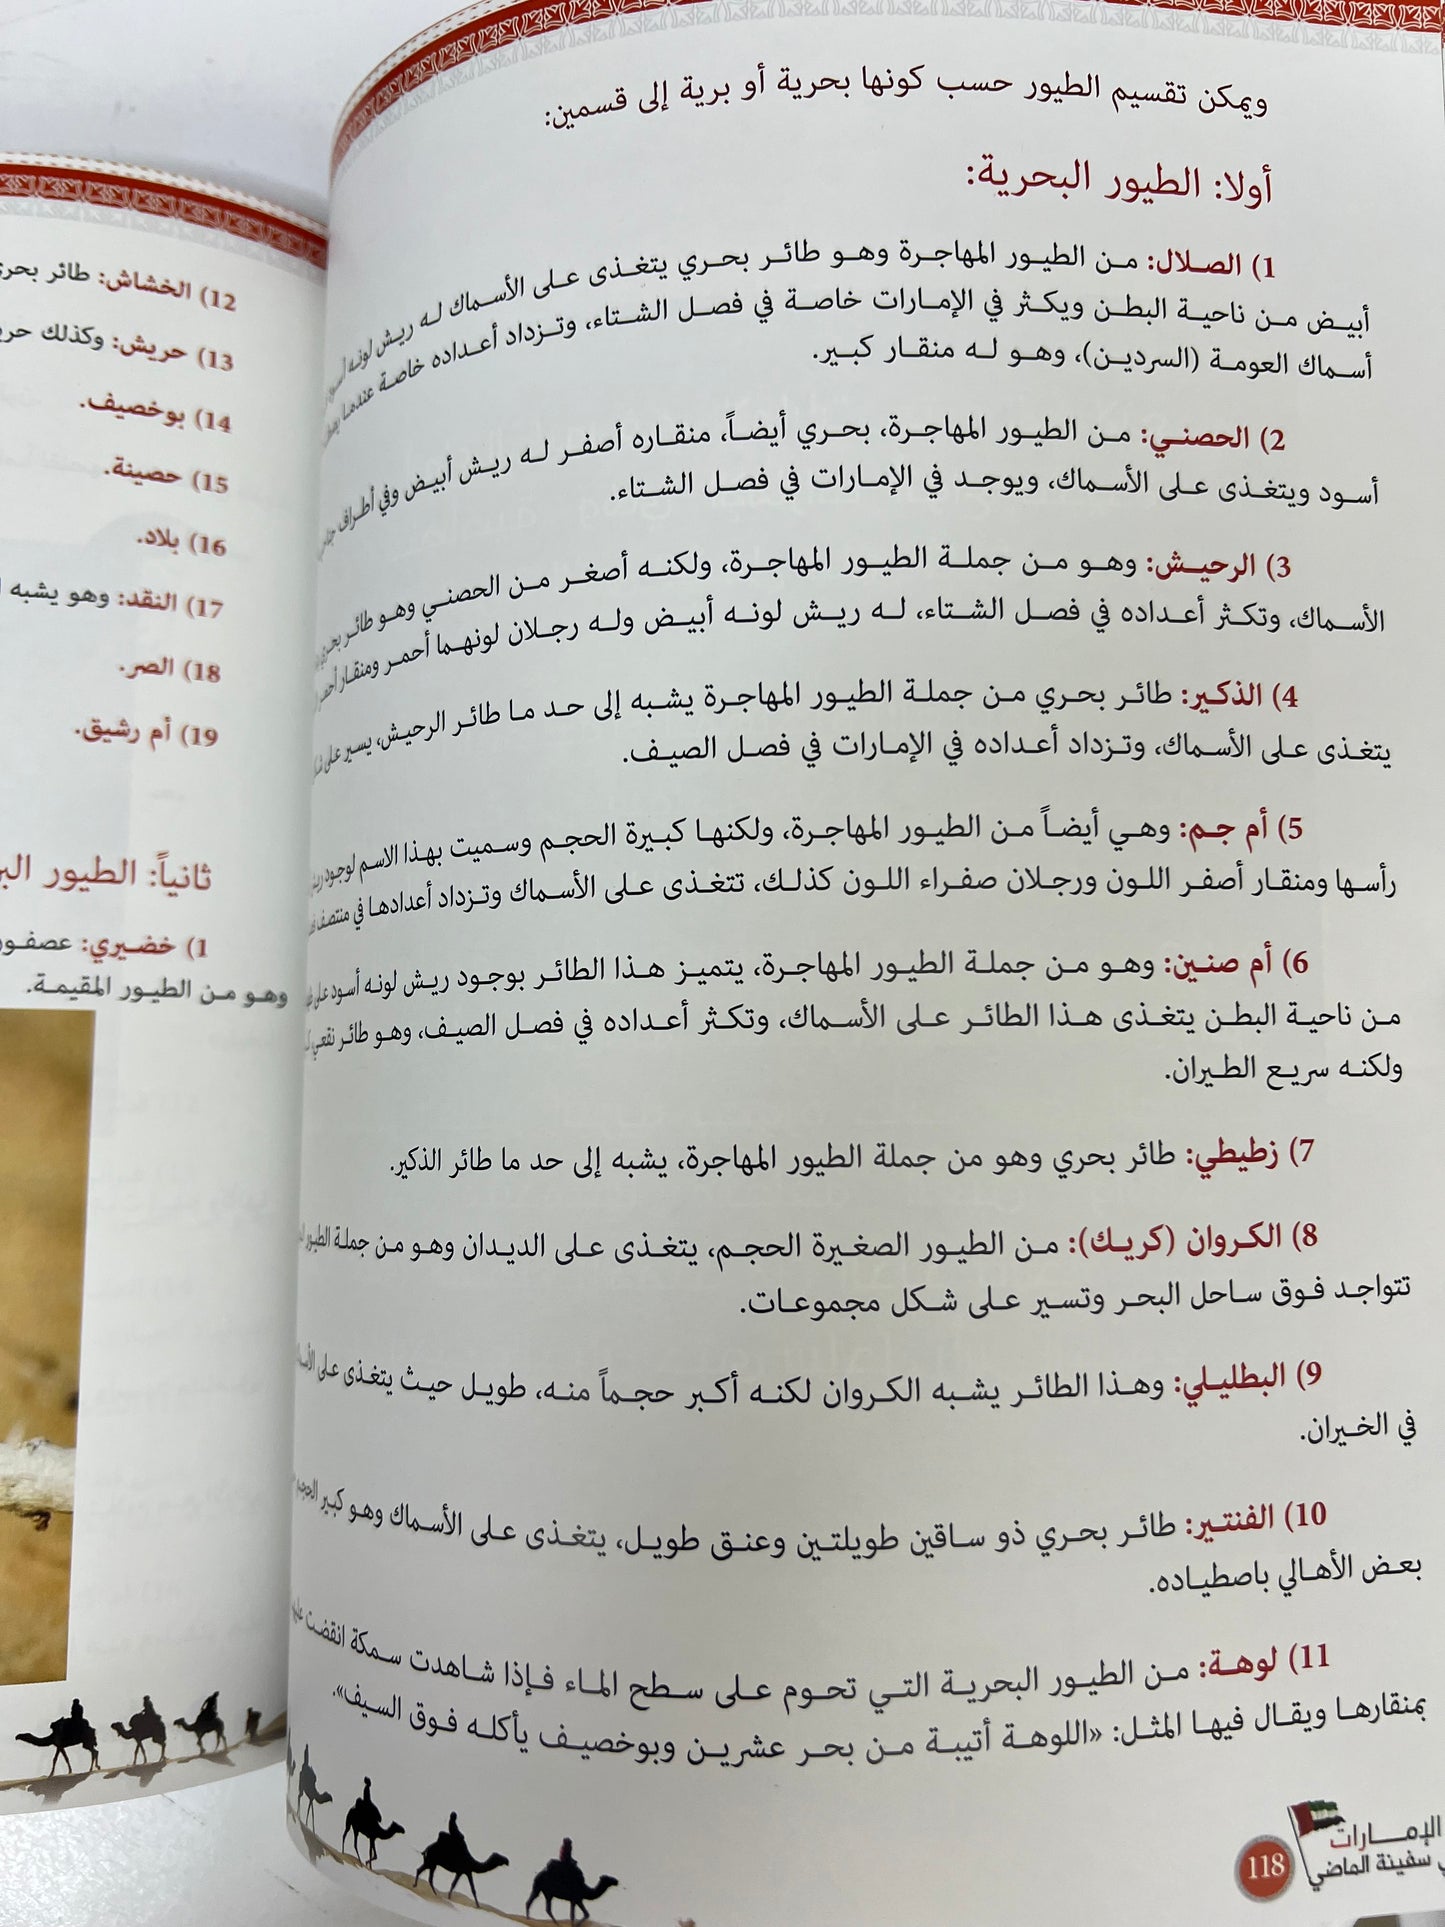 ويمكن تقسيم الطيور حسب كونها بحرية أو برية إلى قسمين:
أولا: الطيور البحرية:
1) الصلال: من الطيور المهاجرة وهو طائر بحري يتغذى على الأسماك له ريش لونه أسود
أبيض من ناحية البطن ويكثر في الإمارات خاصة في فصل الشتاء، وتزداد أعداده خاصة عندما
أسماك العومة (السردين)، وهو له منقار كبير.
2) الحصني: من الطيور المهاجرة، بحري أيضاً، منقاره أصفر له ريش أبيض وفي أطراف
أسود ويتغذى على الأسماك، ويوجد في الإمارات في فصل الشتاء.
3) الرحيش: وهو من جملة الطيور المهاجرة، ولكنه أصغر من الحصني وهو طائر بحري
الأسماك، وتكثر أعداده في فصل الشتاء، له ريش لونه أبيض وله رجلان لونهما أحمر ومنقار أحمر
4) الذكير: طائر بحري من جملة الطيور المهاجرة يشبه إلى حد ما طائر الرحيش، يسير على
يتغذى على الأسماك، وتزداد أعداده في الإمارات في فصل الصيف.
5) أم جم: وهي أيضاً من الطيور المهاجرة، ولكنها كبيرة الحجم وسميت بهذا الاسم لوجود ريش
رأسها ومنقار أصفر اللون ورجلان صفراء اللون كذلك، تتغذى على الأسماك وتزداد أعدادها في منتصف
6) أم صنين: وهو من جملة الطيور المهاجرة، يتميز هذا الطائر بوجود ريش لونه أسود على
من ناحية البطن يتغذى هذا الطائر على الأسماك، وتكثر أعداده في فصل الصيف، وهو طائر نفعي
ولكنه سريع الطيران.
7) زطيطي: طائر بحري وهو من جملة الطيور المهاجرة، يشبه إلى حد ما طائر الذكير.
8) الكروان (كريك): من الطيور الصغيرة الحجم، يتغذى على الديدان وهو من جملة الطيور
تتواجد فوق ساحل البحر وتسير على شكل مجموعات.
9) البطليلي: وهذا الطائر يشبه الكروان لكنه أكبر حجماً منه، طويل حيث يتغذى على
في الخيران.
10) الفنتير: طائر بحري ذو ساقين طويلتين وعنق طويل، يتغذى على الأسماك وهو كبير الحجم
بعض الأهالي باصطياده.
11) لوهة: من الطيور البحرية التي تحوم على سطح الماء فإذا شاهدت سمكة انقضت
بمنقارها ويقال فيها المثل: «اللوهة أتيبة من بحر عشرين وبوخصيف يأكله فوق السيف».
الإمارات
سفينة الماضي
118
12) الخشاش: طائر بحري
13) حريش: وكذلك
14) بوخصيف.
15) حصينة.
16) بلاد.
17) النقد: وهو يشبه
18) الصر.
19) أم رشيق.
ثانياً: الطيور
1) خضيري: عصفور
وهو من الطيور المقيمة.